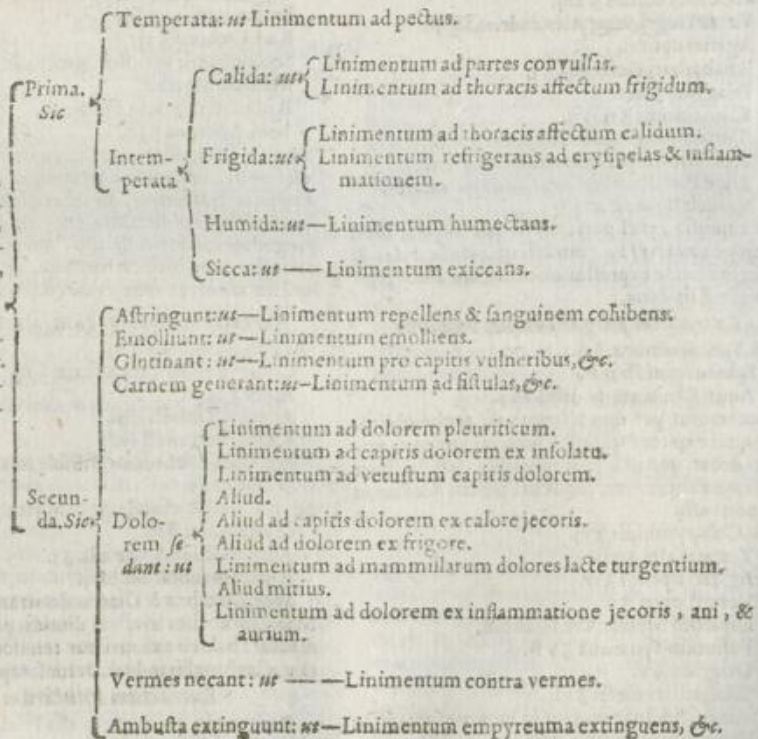 Temperata: ut Linimentum ad pectus.
Prima. Sic
Intem-
perata
Calida: ut
Linimentum ad partes convulsas.
Linimentum ad thoracis affectum frigidum.
Frigida: ut
Linimentum ad thoracis affectum calidum.
Linimentum refrigerans ad erysipelas & inflam-
mationem.
Humida: ut — Linimentum humectans.
Sicca: ut — Linimentum exiccans.
Secun-
da. Sic
Astringunt: ut — Linimentum repellens & sanguinem cohibens.
Emolliunt: ut — Linimentum emolliens.
Glutinant: ut — Linimentum pro capitis vulneribus, &c.
Carnem generant: ut — Linimentum ad fistulas, &c.
Dolo-
rem se-
dant: ut
Linimentum ad dolorem pleuriticum.
Linimentum ad capitis dolorem ex insolatu.
Linimentum ad vetustum capitis dolorem.
Aliud.
Aliud ad capitis dolorem ex calore jecoris.
Aliud ad dolorem ex frigore.
Linimentum ad mammillarum dolores lacte turgentium.
Aliud mitius.
Linimentum ad dolorem ex inflammatione jecoris, ani, &
aurium.
Vermes necant: ut — Linimentum contra vermes.
Ambusta extinguunt: ut — Linimentum empyreuma extinguens, &c.